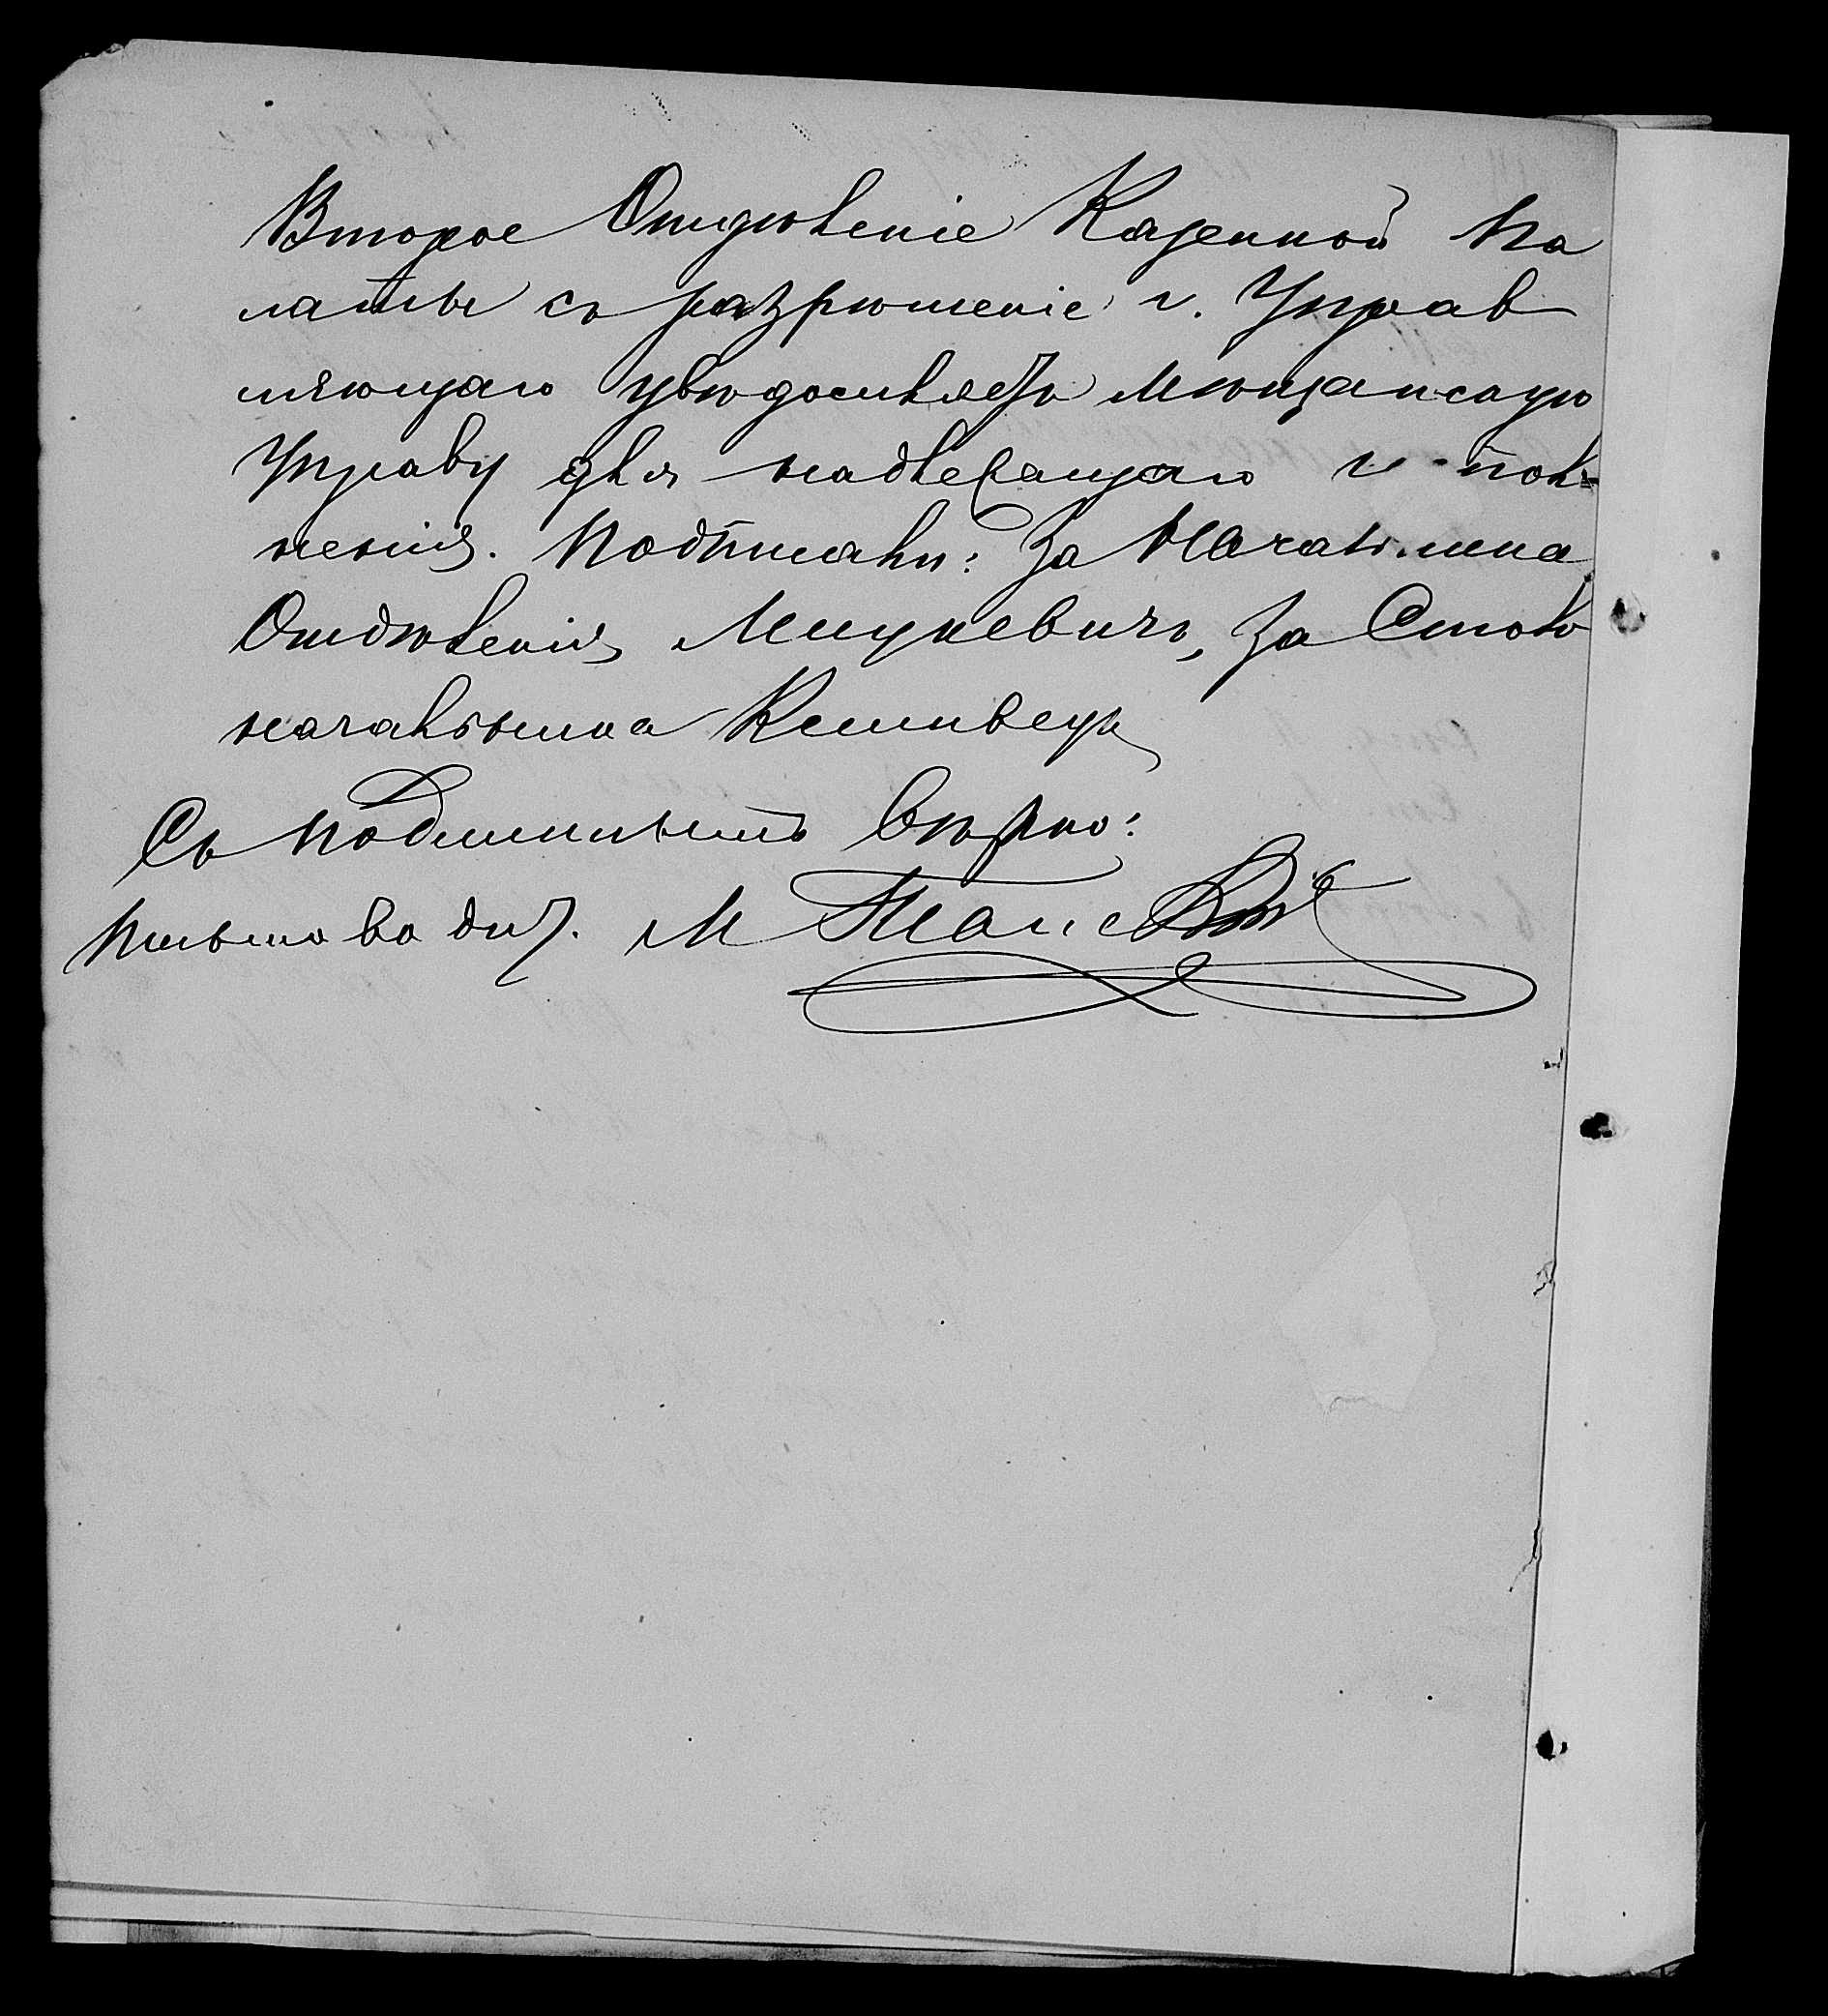 Второе Отдѣленіе Казенной Па
латы съ разрѣшеніе г. Управ
ляющаго увѣдомляетъ Мѣщанскую
Управу для надлежащаго испол
ненія. Подписали: За Начальника
Отдѣленія Мицкевичъ, За Столо
начальника
Съ подлиннымъ вѣрно:
Письмоводит. М